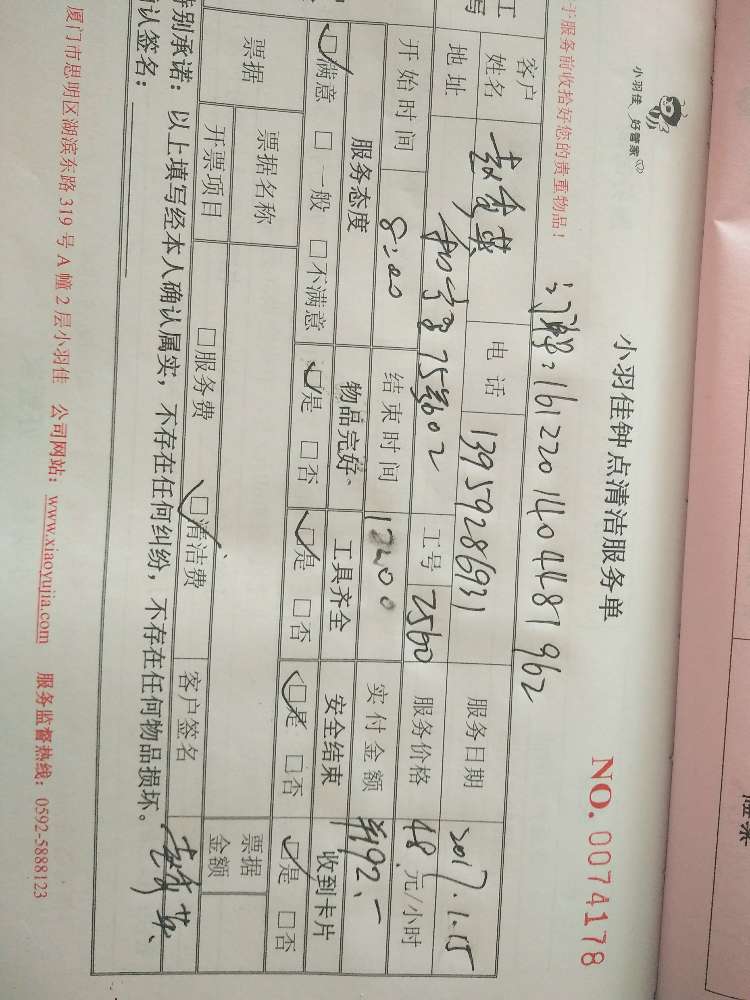 小羽佳 好管家
小羽佳钟点清洁服务单
NO. 0074178
于服务前收拾好您的贵重物品！
161220140448796２
客户姓名 电话 13959286931 服务日期 2017.1.15
地址 75号602 工号 2560 服务价格 48 元/小时
开始时间 8:00 结束时间 12:00 实付金额 ¥192.-
服务态度 物品完好 工具齐全 安全结束 收到卡片
☑满意 □一般 □不满意 ☑是 □否 ☑是 □否 ☑是 □否 ☑是 □否
票据 票据名称 票据金额
开票项目 □服务费 ☑清洁费 客户签名
特别承诺：以上填写经本人确认属实，不存在任何纠纷，不存在任何物品损坏。
确认签名：
厦门市思明区湖滨东路 319 号 A 幢 2 层小羽佳 公司网站：www.xiaoyujia.com 服务监督热线：0592-5888123